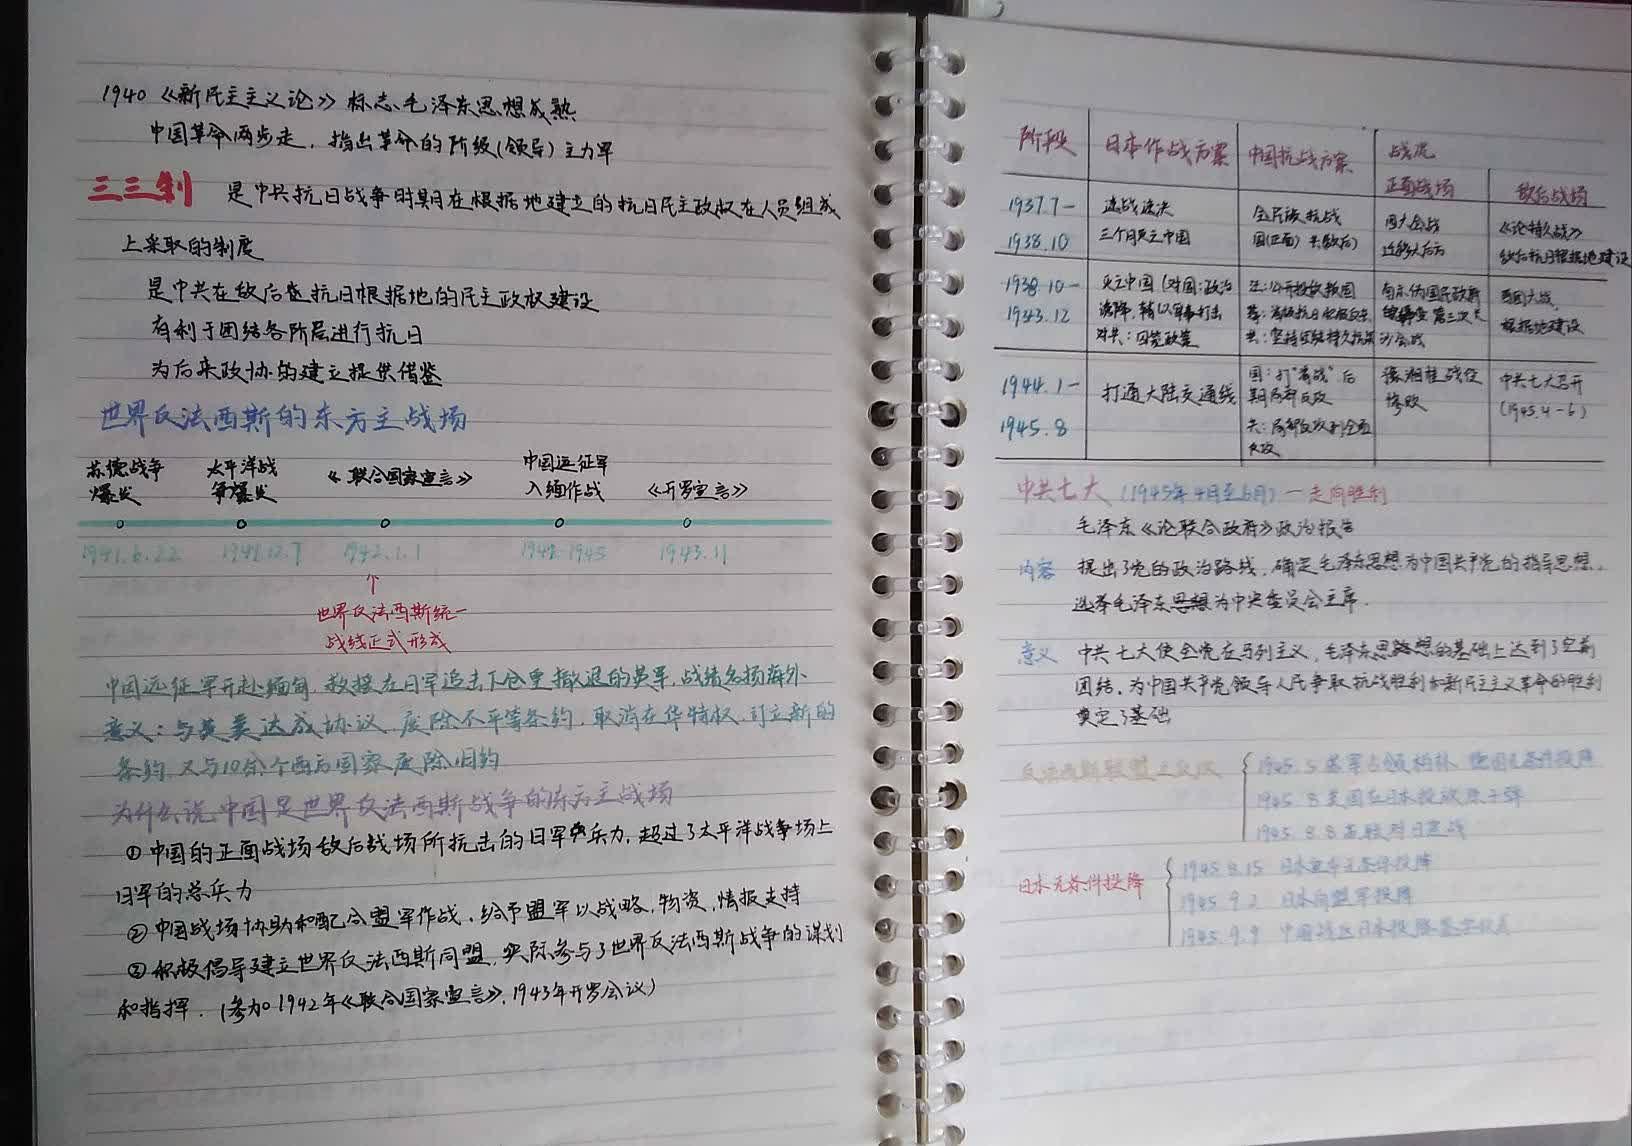 1940 《新民主主义论》标志毛泽东思想成熟
中国革命两步走，指出革命的阶级(领导)主力军
三三制 是中共抗日战争时期在根据地建立的抗日民主政权在人员组成
上采取的制度
是中共在敌后抗日根据地的民主政权建设
有利于团结各阶层进行抗日
为后来政协的建立提供借鉴
世界反法西斯的东方主战场
苏德战争爆发
太平洋战争爆发
《联合国家宣言》
中国远征军入缅作战
《开罗宣言》
1941.6.22 1941.12.7 1942.1.1 1942-1945 1943.11
↑
世界反法西斯统一
战线正式形成
中国远征军开赴缅甸，救援在日军追击下仓皇撤退的英军，战绩名扬海外
意义：与英美达成协议，废除不平等条约，取消在华特权，订立新的
条约，又与10余个西方国家废除旧约
为什么说中国是世界反法西斯战争的东方主战场
①中国的正面战场敌后战场所抗击的日军兵力，超过了太平洋战争场上
日军的总兵力
②中国战场协助和配合盟军作战，给予盟军以战略，物资，情报支持
③积极倡导建立世界反法西斯同盟，实际参与了世界反法西斯战争的谋划
和指挥．(参加1942年《联合国家宣言》，1943年开罗会议)
阶段 日本作战方案 中国抗战方案 战况
正面战场 敌后战场
1937.7-
1938.10
速战速决
三个月灭亡中国
全民族抗战
国(正面) 共(敌后)
四大会战
迁移大后方
《论持久战》
敌后抗日根据地建设
1938.10-
1943.12
灭亡中国(对国：政治
诱降，辅以军事打击
对共：囚笼政策
共：坚持团结持久抗战
第三次长
沙会战
百团大战，
根据地建设
1944.1-
1945.8
打通大陆交通线
国：打“着战”后
期局部反攻
共：局部反攻到全面
反攻
豫湘桂战役
惨败
中共七大召开
(1945.4-6)
中共七大 (1945年4月至6月) —走向胜利
毛泽东《论联合政府》政治报告
内容 提出了党的政治路线，确定毛泽东思想为中国共产党的指导思想．
选举毛泽东思想为中央委员会主席．
意义 中共七大使全党在马列主义，毛泽东思路想的基础上达到了空前
团结，为中国共产党领导人民争取抗战胜利和新民主主义革命的胜利
奠定了基础
反法西斯联盟
1945.5 苏军占领柏林 德国无条件投降
1945.8 美国在日本投放原子弹
1945.8.8 苏联对日宣战
日本无条件投降
1945.8.15 日本宣布无条件投降
1945.9.2 日本向盟军投降
1945.9.9 中国战区日本投降签字仪式